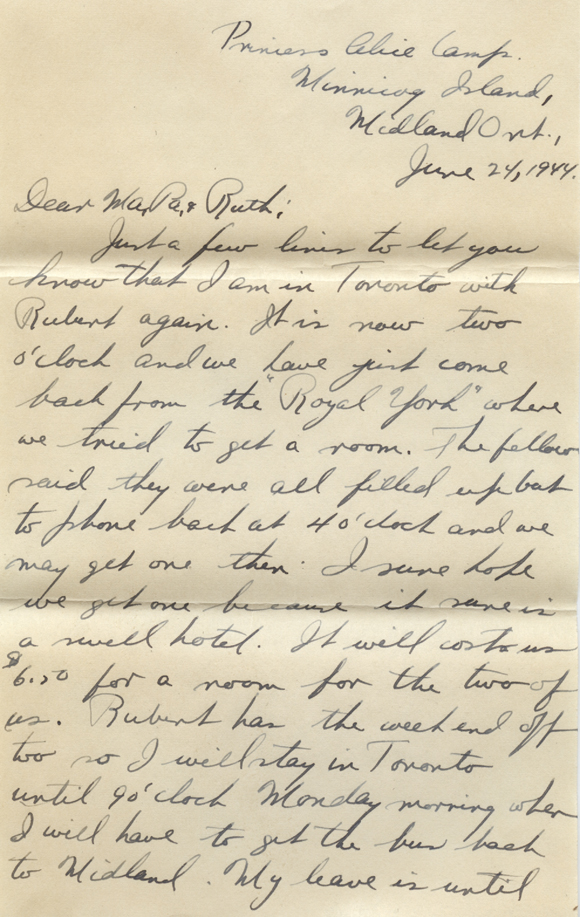 Princess Alice Camp.
Minnicog Island,
Midland Ont.,
June 24, 1944.
Dear Ma, Pa, & Ruth;
Just a few lines to let you
know that I am in Toronto with
Rubert again. It is now two
o'clock and we have just come
back from the "Royal York" where
we tried to get a room. The fellow
said they were all filled up but
to phone back at 4 o'clock and we
may get one then. I sure hope
we get one because it sure is
a swell hotel. It will cost us
$6.50 for a room for the two of
us. Rubert has the week end off
too so I will stay in Toronto
until 9 o'clock Monday morning when
I will have to get the bus back
to Midland. My leave is until